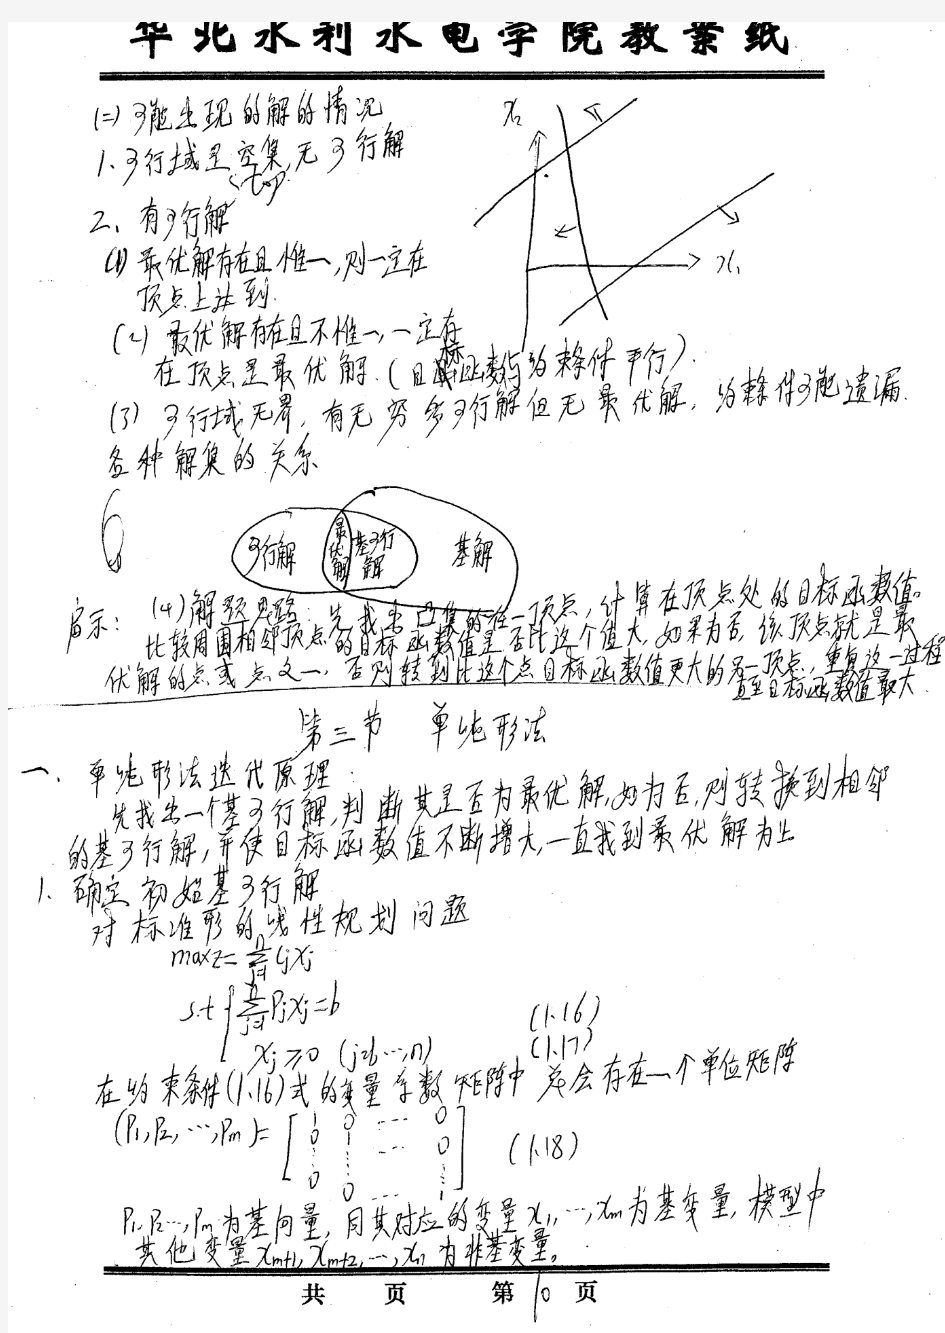 华北水利水电学院教案纸
(二)可能出现的解的情况
1、可行域是空集,无可行解
2、有可行解
(1)最优解存在且惟一,则一定在
顶点上达到.
(2)最优解存在且不惟一,一定存
在顶点是最优解.(目标函数与约束条件平行).
(3)可行域无界,有无穷多可行解但无最优解,约束条件可能遗漏.
各种解集的关系
可行解 最优解 基可行解 基解
启示:(4)解题思路:先找出凸集的任一顶点,计算在顶点处的目标函数值。
比较周围相邻顶点的目标函数值是否比这个值大,如果为否,该顶点就是最
优解的点或点之一,否则转到比这个点目标函数值更大的另一顶点,重复这一过程
直至目标函数值最大.
第三节 单纯形法
一、单纯形法迭代原理:
先找出一个基可行解,判断其是否为最优解,如为否,则转换到相邻
的基可行解,并使目标函数值不断增大,一直找到最优解为止
1.确定初始基可行解
对标准形的线性规划问题
max z=∑_{j=1}^{n} cjxj
s.t { ∑_{j=1}^{n} Pjxj=b (1.16)
xj≥0 (j=1,…,n) (1.17)
在约束条件(1.16)式的变量系数矩阵中总会存在一个单位矩阵
(P1,P2,…,Pm)=[ 1 0 … 0
0 1 … 0
⋮ ⋮ ⋮
0 0 … 1 ] (1.18)
P1,P2…,Pm为基向量,同其对应的变量x1,…,xm为基变量,模型中
其他变量xm+1,xm+2,…,xn为非基变量。
共 页 第 10 页
x2
x1